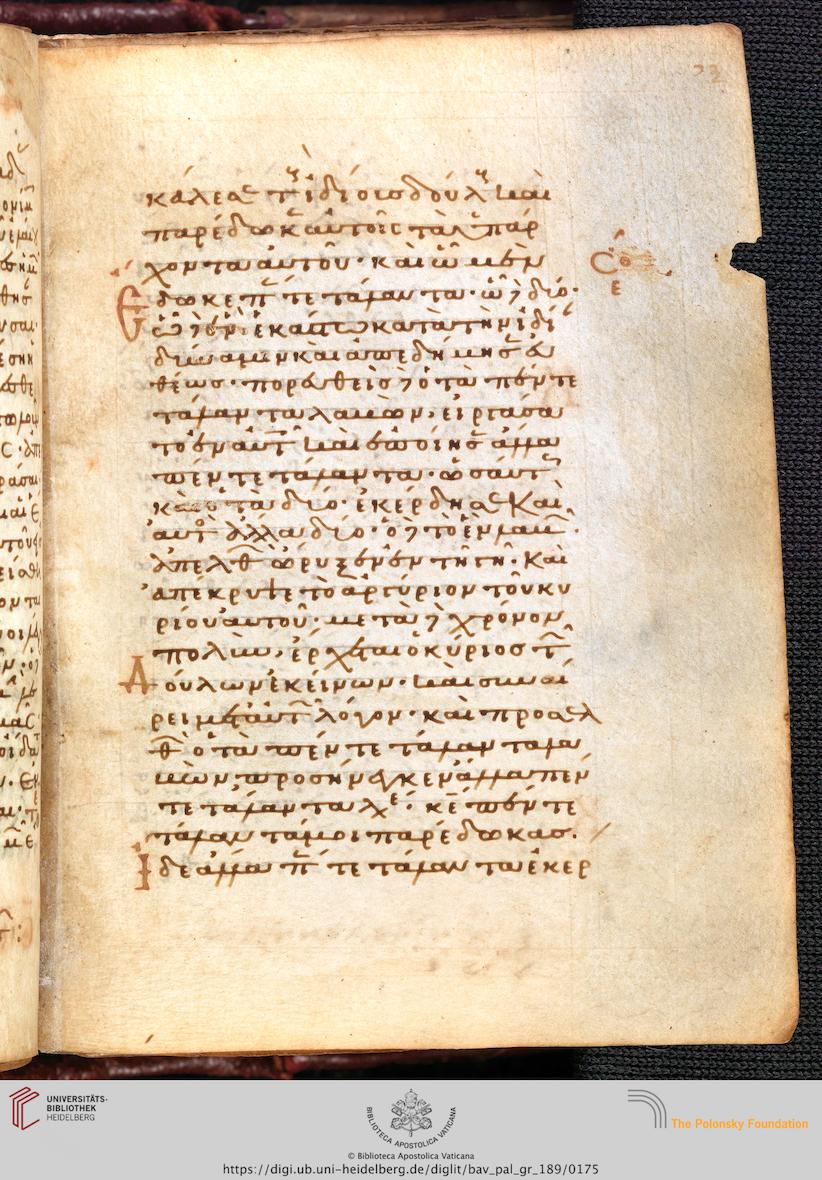 23
κάλεσ τ ἰδίοισ δούλ καὶ
παρέδωκ αὐτοῖς τὰ ὑπάρ
χοντα αὐτοῦ· καὶ ὧ μὲν
Ἔδωκε π τε τάλαντα· ὧ δὲ δύο·
ὧ δὲ ἕν· ἑκάστω κατὰ τὴν ἰδί
δύναμιν καὶ ἀπεδήμησ εὐ
θέως· πορευθεὶσ δὲ ὁ τὰ πέντε
τάλαντα λαβὼν, εἰργάσα
το ἐν αὐτ καὶ ἐποίησ ἄλλα
πέντε τάλαντα· ὡσαύτ
κ ὁ τὰ δύο· ἐκέρδησ καὶ
αὐτὸ ἄλλα δύο· ὁ δὲ τὸ ἓν λαβ
ἀπελθ ὤρυξεν ἐν τῆ γῆ· καὶ
ἀπέκρυψε τὸ ἀργύριον τοῦ κυ
ρίου αὐτοῦ· μετὰ δὲ χρόνον
πολὺν, ἔρχεται ὁ κύριοσ τ
Δούλων ἐκείνων· καὶ συναί
ρει μετ αὐτ λόγον· καὶ προσελ
θ ὁ τὰ πέντε τάλαντα λα
βὼν προσήνεγκεν ἄλλα πέν
τε τάλαντα λε· κε πέντε
τάλαντά μοι παρέδωκασ.
Ἴδε ἄλλα π τε τάλαντα ἐκερ
UNIVERSITÄTS-
BIBLIOTHEK
HEIDELBERG
BIBLIOTECA APOSTOLICA VATICANA
The Polonsky Foundation
© Biblioteca Apostolica Vaticana
https://digi.ub.uni-heidelberg.de/diglit/bav_pal_gr_189/0175